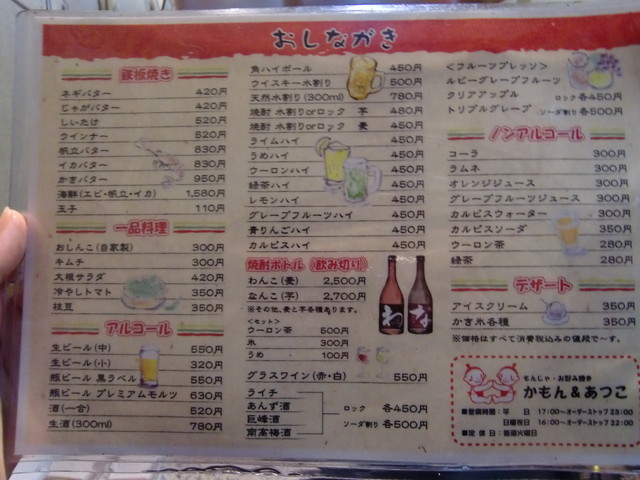 おしながき
鉄板焼き
ネギバター 420円
じゃがバター 420円
しいたけ 520円
ウインナー 520円
帆立バター 830円
イカバター 830円
かきバター 950円
海鮮(エビ・帆立・イカ) 1,580円
玉子 110円
一品料理
おしんこ(自家製) 300円
キムチ 300円
大根サラダ 420円
冷やしトマト 350円
枝豆 350円
アルコール
生ビール(中) 550円
生ビール(小) 320円
瓶ビール 黒ラベル 550円
瓶ビール プレミアムモルツ 630円
酒(一合) 520円
生酒(300ml) 780円
角ハイボール 450円
ウイスキー水割り 500円
天然水割り(300ml) 780円
焼酎 水割りorロック 芋 480円
焼酎 水割りorロック 麦 450円
ライムハイ 450円
うめハイ 450円
ウーロンハイ 450円
緑茶ハイ 450円
レモンハイ 450円
グレープフルーツハイ 450円
青りんごハイ 450円
カルピスハイ 450円
焼酎ボトル(飲み切り)
わんこ(麦) 2,500円
なんこ(芋) 2,700円
※その他、麦と芋各種あります。
<セット>
ウーロン茶 500円
氷 300円
うめ 100円
わ
な
グラスワイン(赤・白) 550円
ライチ
あんず酒
巨峰酒
南高梅酒
ロック 各450円
ソーダ割り 各500円
<フルーツプレッソ>
ルビーグレープフルーツ
クリアアップル
トリプルグレープ
ロック 各450円
ソーダ割り 各500円
ノンアルコール
コーラ 300円
ラムネ 300円
オレンジジュース 300円
グレープフルーツジュース 300円
カルピスウォーター 300円
カルピスソーダ 350円
ウーロン茶 280円
緑茶 280円
デザート
アイスクリーム 350円
かき氷各種 350円
※価格はすべて消費税込みの値段で〜す。
もんじゃ・お好み焼き
かもん&あつこ
■営業時間:平 日 17:00〜オーダーストップ23:00
日曜祝日 16:00〜オーダーストップ22:00
■定 休 日:毎週火曜日